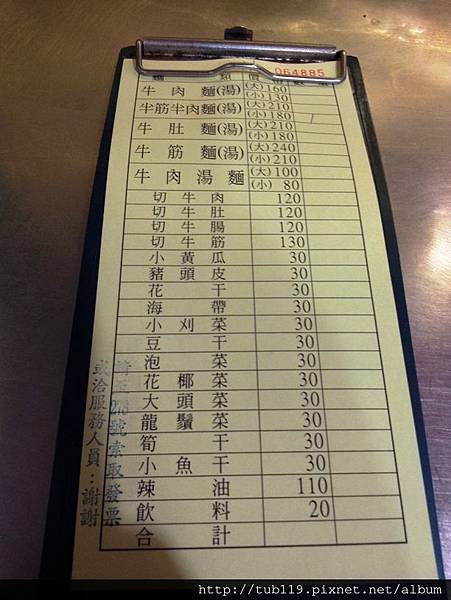 064885
麵 類 價
牛肉麵(湯) (大)160 (小)130
半筋半肉麵(湯) (大)210 (小)180
牛肚麵(湯) (大)210 (小)180
牛筋麵(湯) (大)240 (小)210
牛肉湯麵 (大)100 (小)80
切牛肉 120
切牛肚 120
切牛腸 120
切牛筋 130
小黃瓜 30
豬頭皮 30
花干 30
海帶 30
小刈菜 30
豆干 30
泡菜 30
花椰菜 30
大頭菜 30
龍鬚菜 30
筍干 30
小魚干 30
辣油 110
飲料 20
合計
號索取發票
或洽服務人員:謝謝
http://tubl19.pixnet.net/album